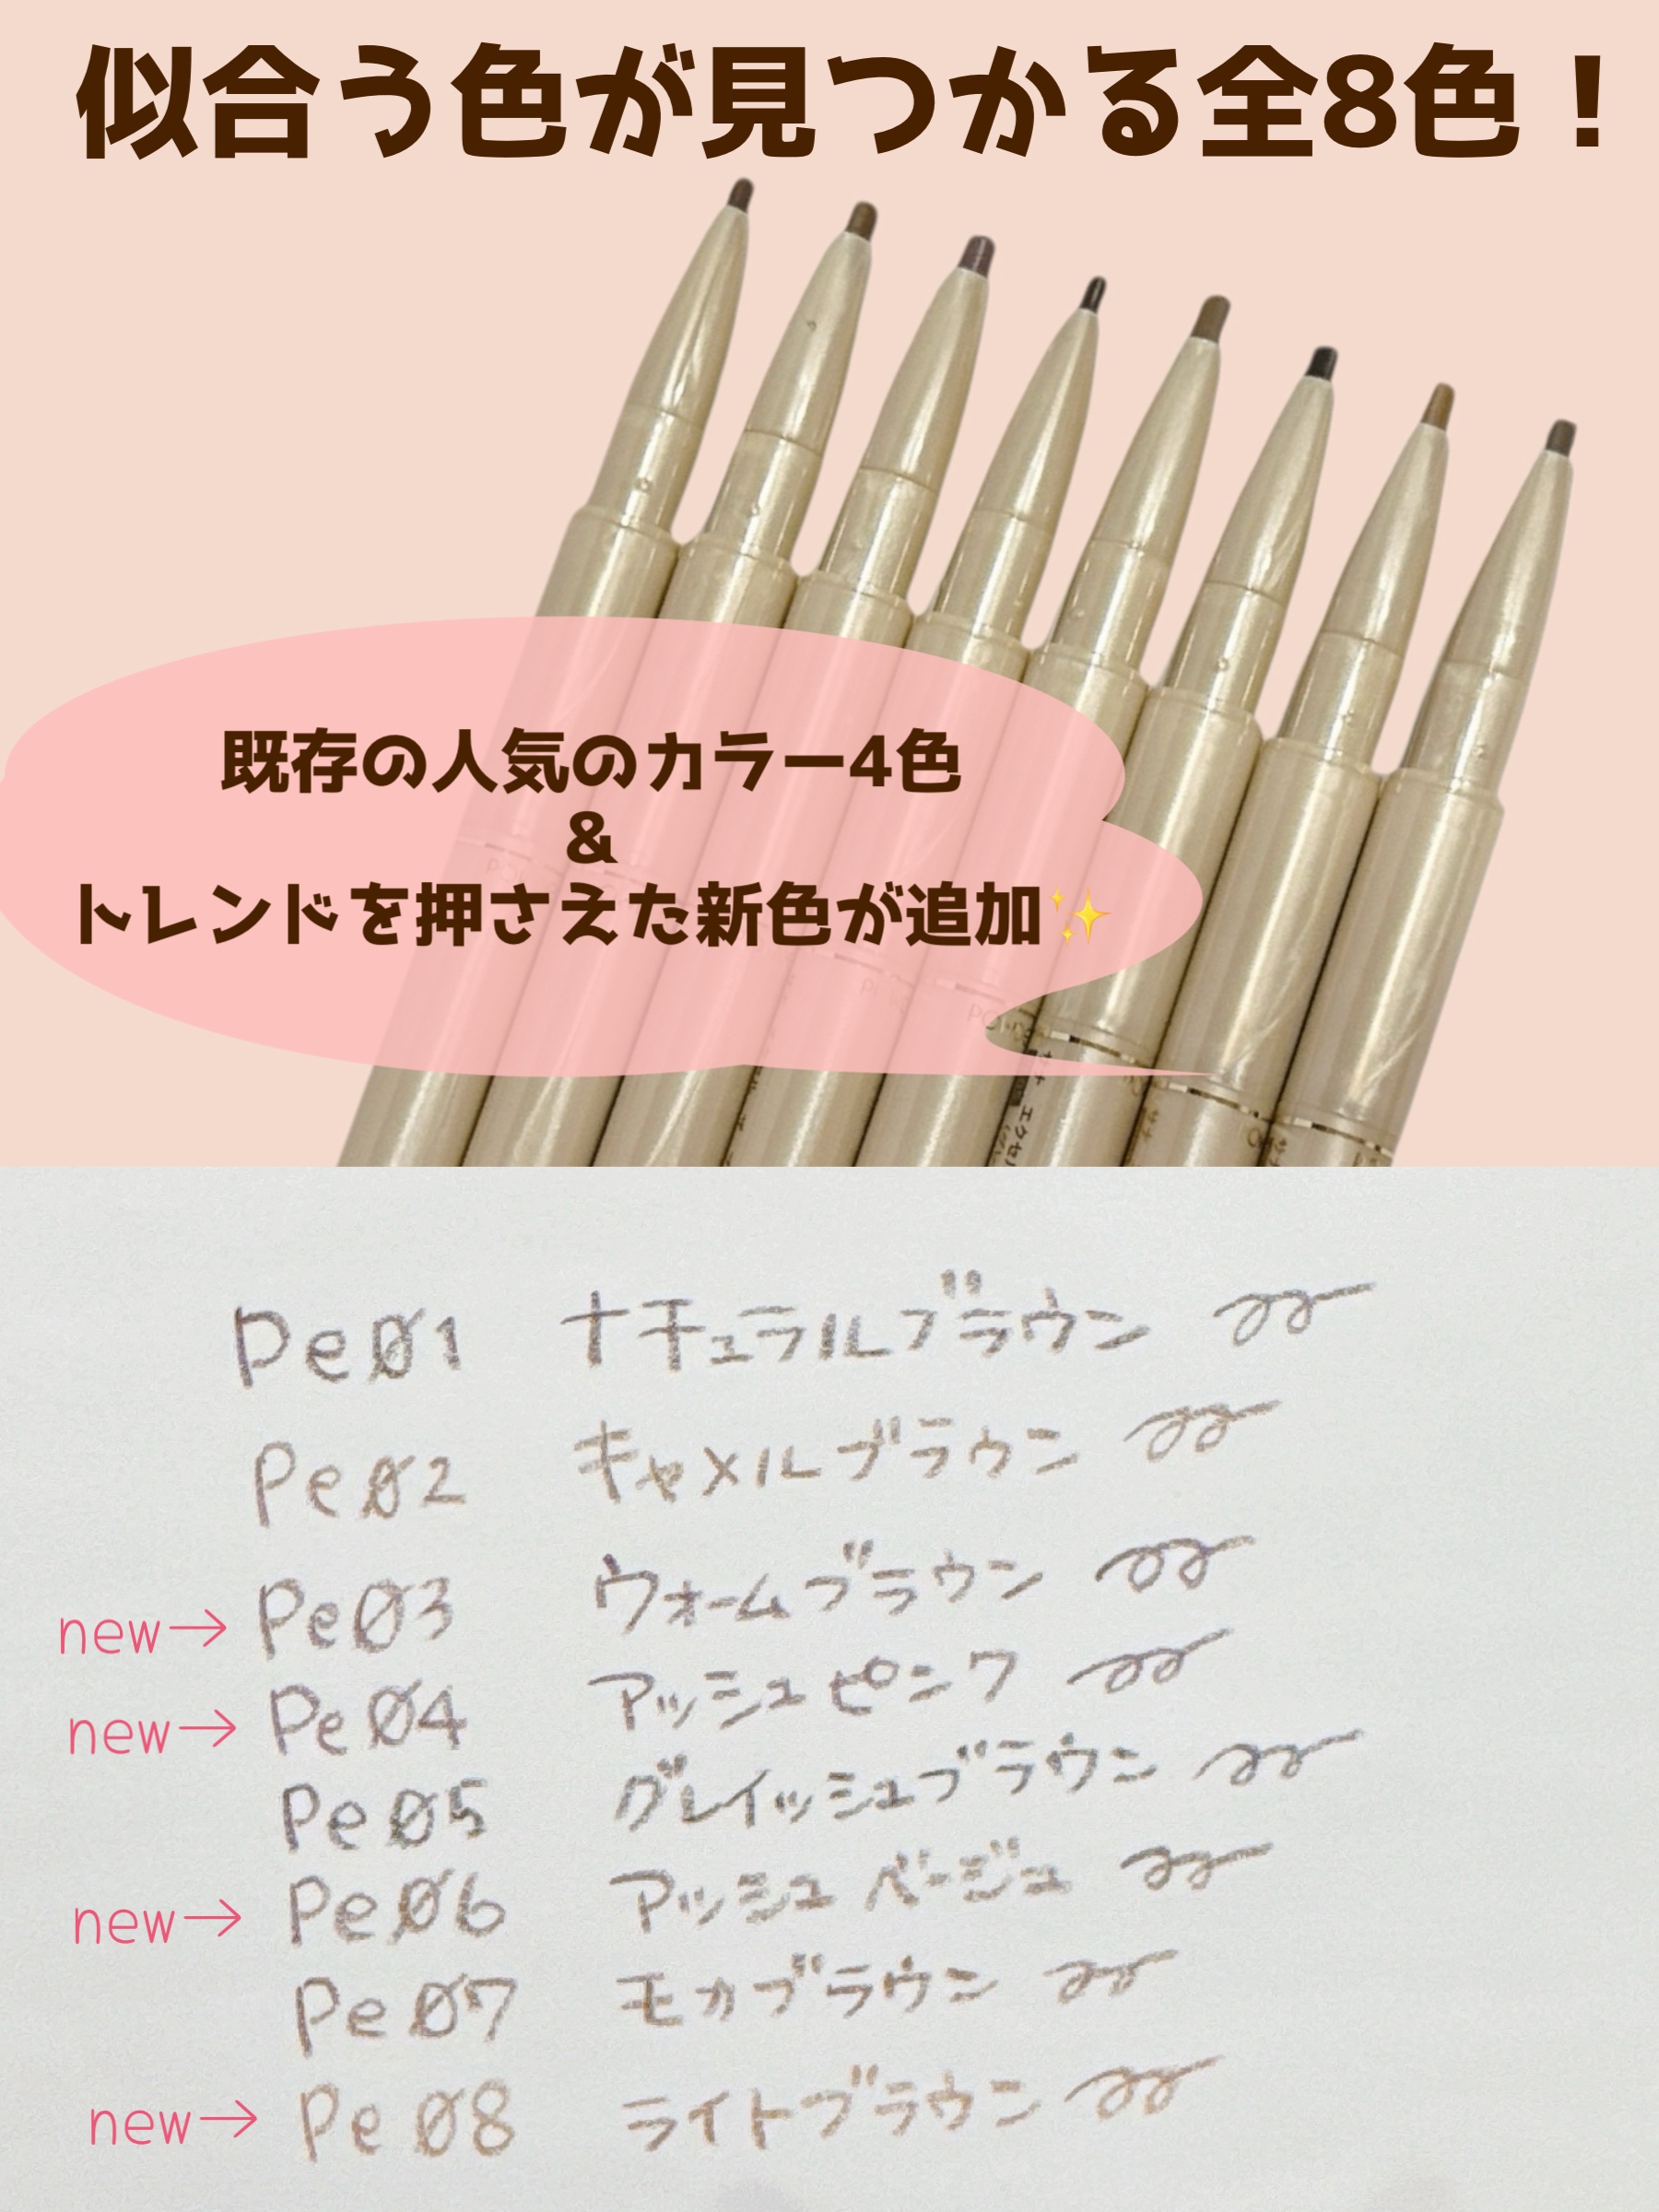 似合う色が見つかる全8色！
既存の人気のカラー4色
&
トレンドを押さえた新色が追加✨
Pe01 ナチュラルブラウン
Pe02 キャメルブラウン
new→ Pe03 ウォームブラウン
new→ Pe04 アッシュピンク
Pe05 グレイッシュブラウン
new→ Pe06 アッシュベージュ
Pe07 モカブラウン
new→ Pe08 ライトブラウン